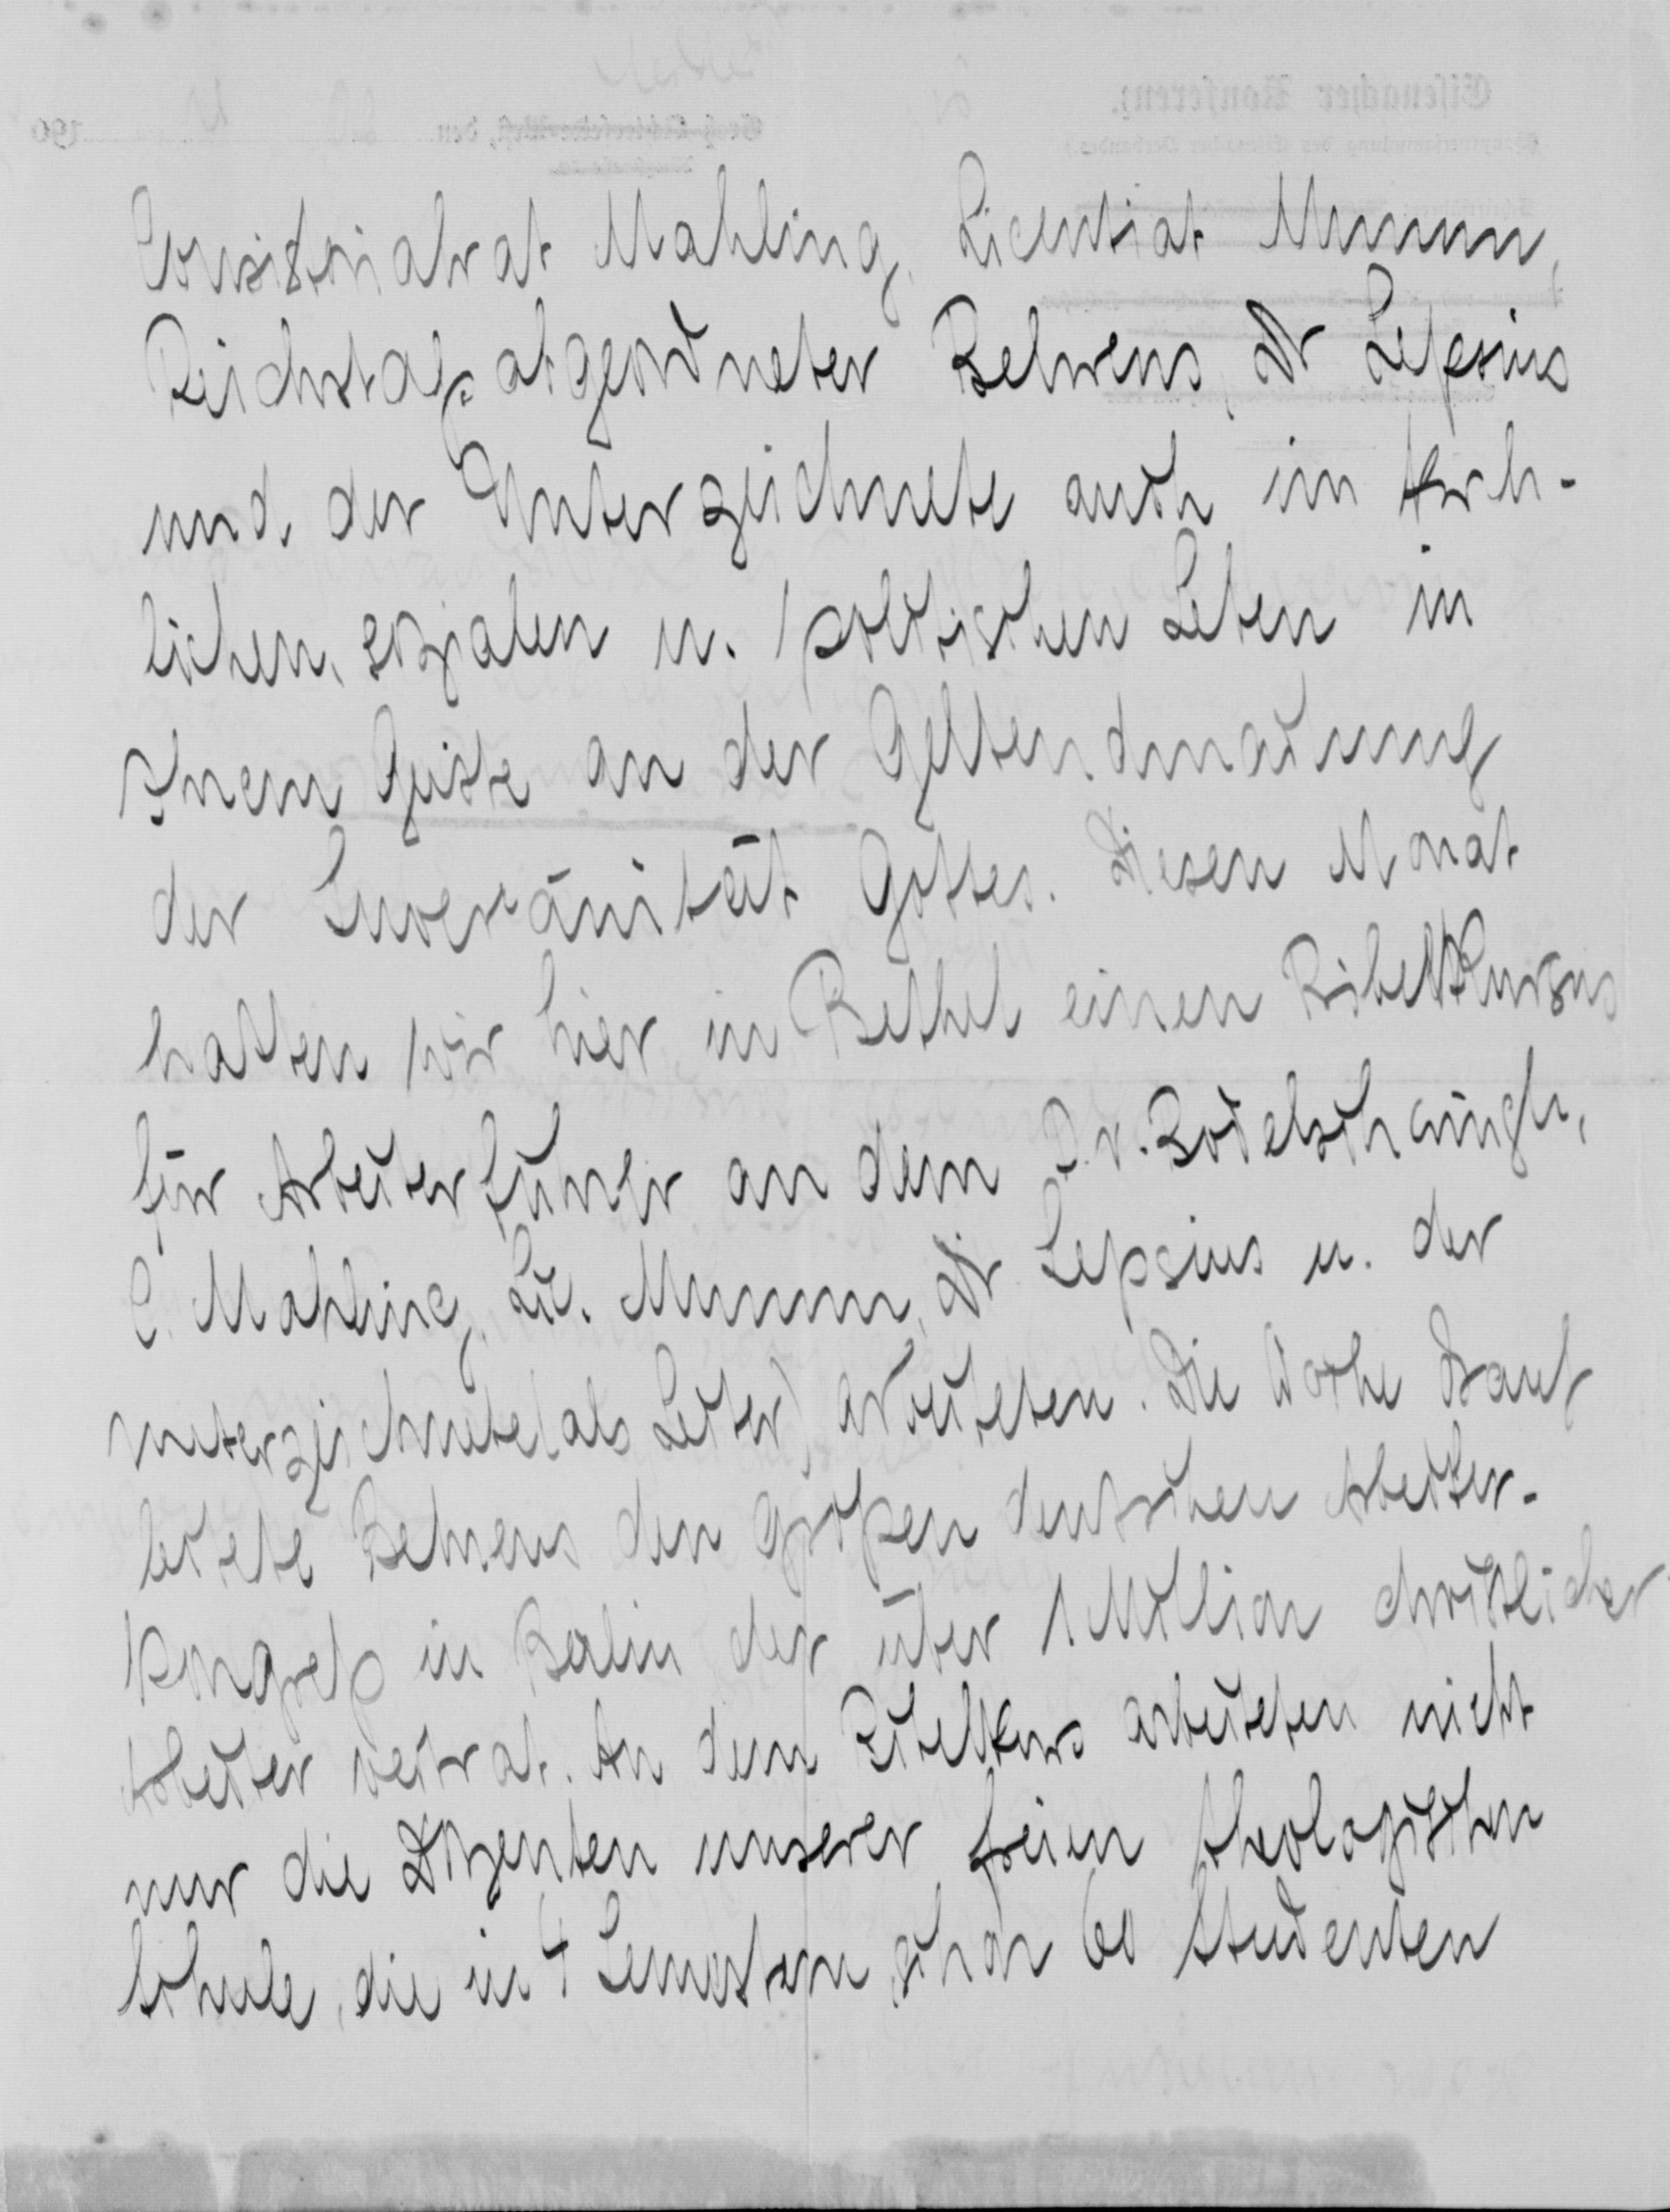 Consistorialrat Mahling, Licentiat Mumm,
Reichstagsabgeordneter Behrens, Dr Lepsius
und der Unterzeichnete auch im kirch-
lichen, sozialen u. politischen Leben in
Ihrem Geiste an der Geltendmachung
der Suveränität Gottes. Diesen Monat
hatten wir hier in Bethel einen Bibelkursus
für Arbeiterführer an dem D. v. Bodelschwingh,
C. Mahling, Lic. Mumm, Dr Lepsius u. der
Unterzeichnete (als Leiter) arbeiteten. Die Woche drauf
leitete Behrens den großen deutschen Arbeiter-
kongreß in Berlin der über 1 Million christlicher
Arbeiter vertrat. An dem Bibelkurs arbeiteten nicht
nur die Dozenten unserer freien theologischen
Schule, die in 4 Semestern schon 60 Studenten